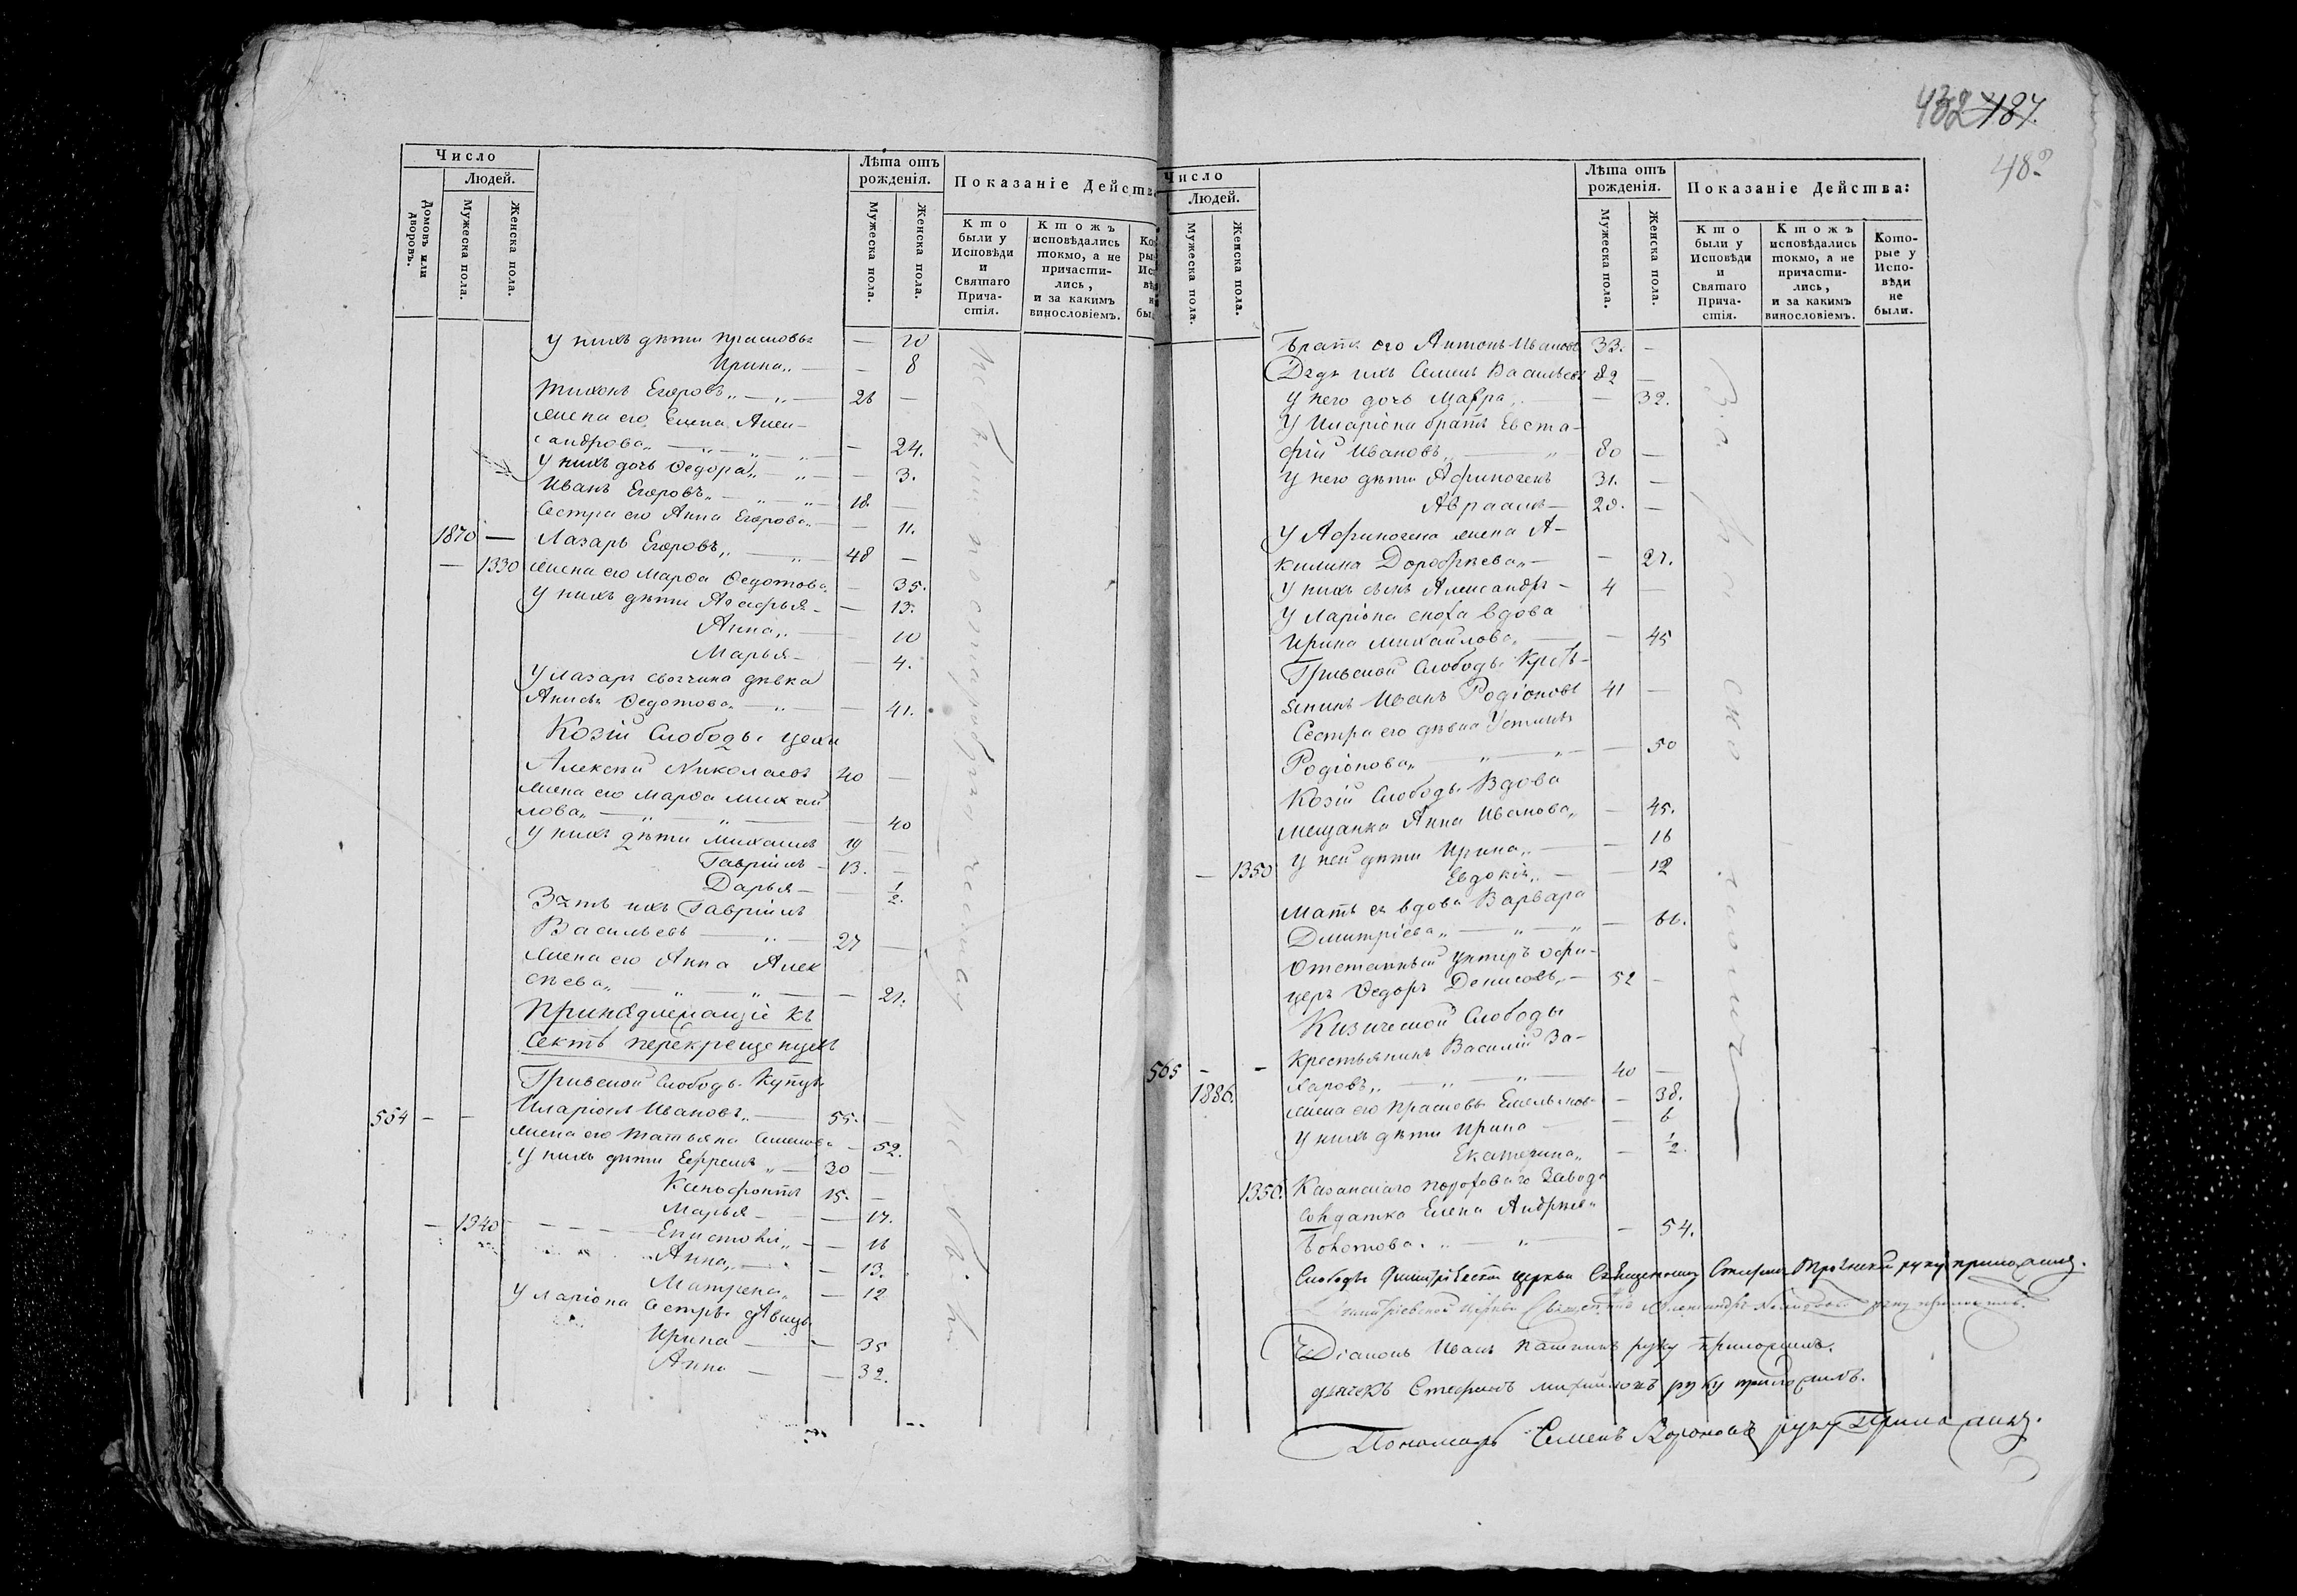 432 187.
48
Число
Людей.
Домовъ или дворовъ.
Мужеска пола.
Женска пола.
Лѣта отъ рожденія.
Мужеска пола.
Женска пола.
Показаніе Действ
Кто были у Исповѣди и Святаго Причастія.
Ктожъ исповѣдались токмо, а не причастились, и за какимъ винословіемъ.
у нихъ дѣти Прасковья — 20
Ирина — 8
Тихонъ Егоровъ 26 —
жена его Елена Алек-
сандрова — 24.
у нихъ дочь Ѳедора — 3.
Иванъ Егоровъ 18. —
Сестра его Анна Егорова — 11.
1870 — Лазарь Егоровъ 48 —
— 1330 жена его Марѳа Ѳедотова — 35.
у нихъ дѣти Агафья — 13.
Анна — 10
Марья — 4.
у Лазаря своячина дѣвка
Анисья Ѳедотова — 41.
Козій Слободы цехи
Алексѣй Николаевъ 40 —
жена его Марѳа Михай
лова — 40
у нихъ дѣти Михаилъ 19 —
Гавріилъ 13. —
Дарья — 1/2.
Зять ихъ Гавріилъ
Васильевъ 27 —
жена его Анна Алек
сѣева — 21.
Принадлежащіе къ
Сектѣ перекрещенцевъ
Гривской Слободы Купцъ
554 — — Иларіонъ Ивановъ 55. —
жена его Татьяна Семенова — 52.
у нихъ дѣти Ефремъ 20 —
Ксенофонтъ 15. —
Марья — 17.
— 1340 Епистимія — 16
Анна — 13.
Матрена — 12
у Ларіона Сестры дѣвицы
Ирина — 35
Анна — 32.
Число
Людей.
Мужеска пола.
Женска пола.
Лѣта отъ рожденія.
Мужеска пола.
Женска пола.
Показаніе Действа:
Кто были у Исповѣди и Святаго Причастія.
Ктожъ исповѣдались токмо, а не причастились, и за какимъ винословіемъ.
Которые у Исповѣди не были.
Братъ его Антонъ Ивановъ 33. —
Дядя ихъ Семенъ Васильевъ 82 —
у него дочь Мавра — 32.
У Иларіона братъ Евста-
фій Ивановъ 80 —
у него дѣти Афиногенъ 31. —
Авраамъ 28. —
У Афиногена жена А-
килина Дорофѣева — 27.
у нихъ сынъ Александръ 4 —
У Ларіона сноха вдова
Ирина Михайлова — 45
Гривской Слободы Кресть-
янинъ Иванъ Родіоновъ 41 —
Сестра его дѣвка Устинья
Родіонова — 50
Козій Слободы Вдова
Мещанка Анна Иванова — 45.
у ней дѣти Ирина — 16
— 1350 Евдокія — 12
Мать ея вдова Варвара
Дмитріева — 66.
Отставный унтеръ офи-
церъ Ѳедоръ Денисовъ 52 —
Кизической Слободы
565 — — Крестьянинъ Василій За-
харовъ 40 —
1886. жена его Прасковья Емельянов — 38.
у нихъ дѣти Ирина — 6
Екатерина — 1/2.
1356. Казанскаго пороховаго завода
Солдатка Елена Андрѣева — 54.
Слободы Димитріевской церкви Священникъ Стефанъ Троицкій руку приложилъ.
церкви Священникъ Александръ руку приложилъ.
Діаконъ Иванъ Пашинъ руку приложилъ.
дьячекъ Стефанъ Михайловъ руку приложилъ.
Пономарь Семенъ Вороновъ руку приложилъ.